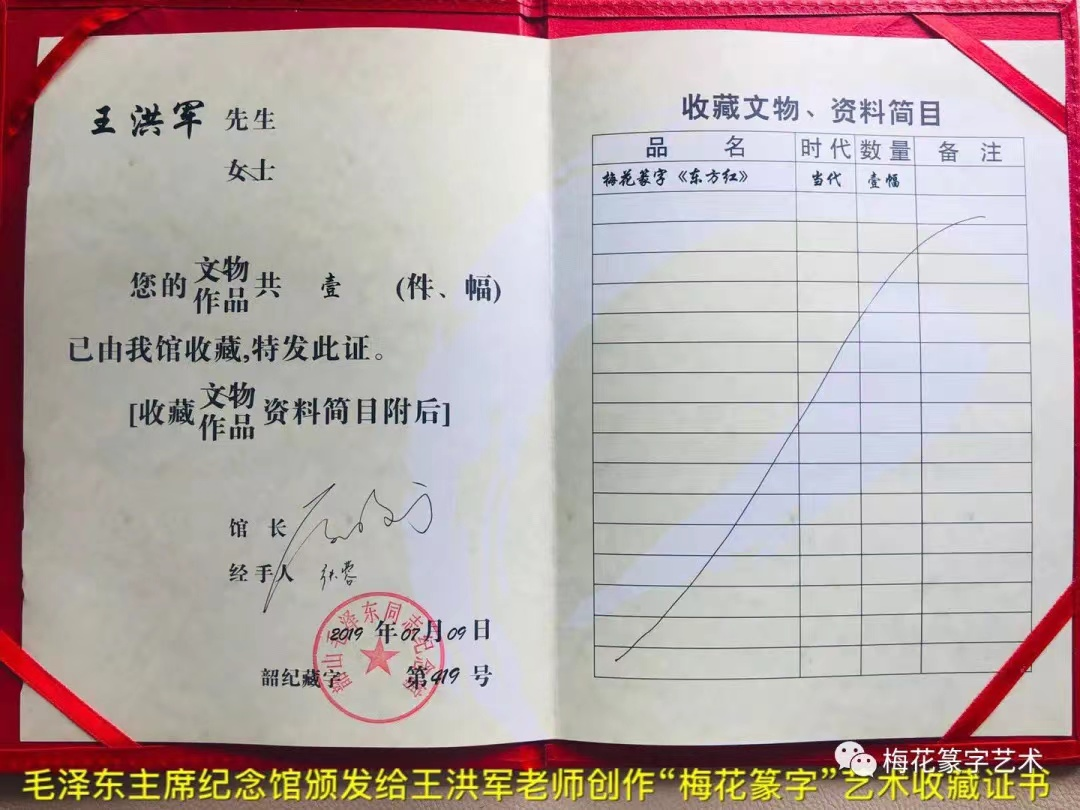 王洪军 先生
女士
您的文物共 壹 (件、幅)
作品
已由我馆收藏,特发此证。
[收藏文物资料简目附后]
作品
馆 长
经手人 张蓉
韶山毛泽东同志纪念馆
2019 年07月09日
韶纪藏字 第419号
收藏文物、资料简目
品 名 时代 数量 备 注
梅花篆字《东方红》 当代 壹幅
梅花篆字艺术
毛泽东主席纪念馆颁发给王洪军老师创作“梅花篆字”艺术收藏证书